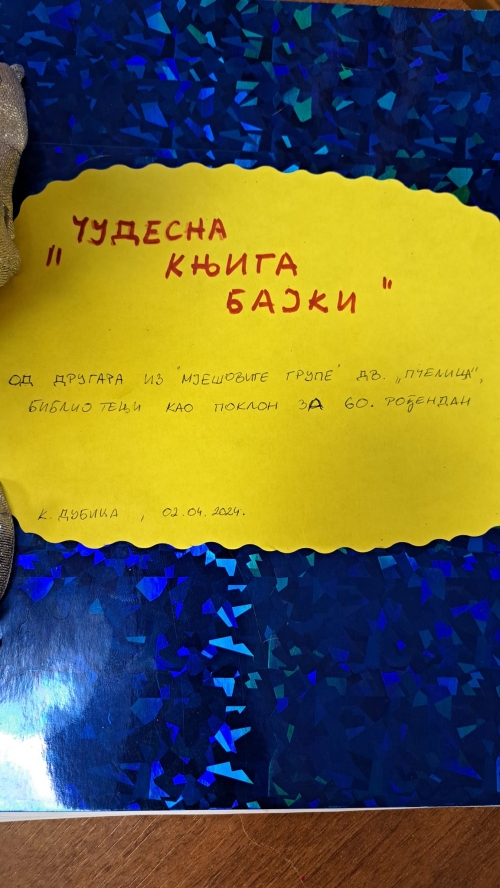 "ЧУДЕСНА
КЊИГА
БАЈКИ"
ОД ДРУГАРА ИЗ "МЈЕШОВИТЕ ГРУПЕ" ДВ. „ПЧЕЛИЦА",
БИБЛИОТЕЦИ КАО ПОКЛОН ЗА 60. РОЂЕНДАН
К. ДУБИЦА , 02.04.2024.